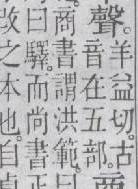 聲羊益切古
商書音在五部
曰驛而尚書
謂洪範曰
改之本也自